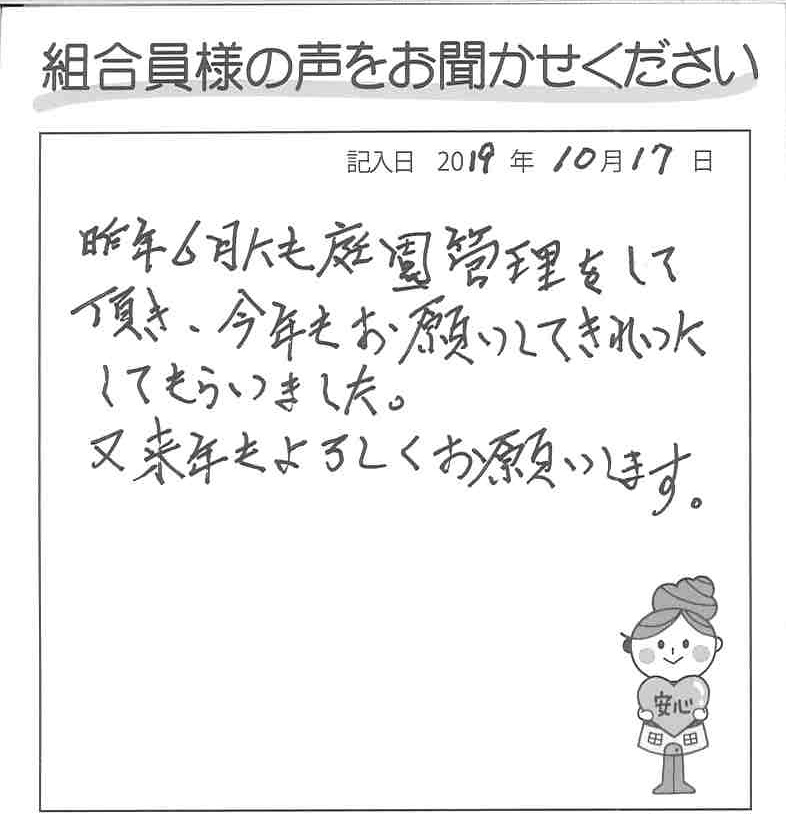 組合員様の声をお聞かせください
記入日 2019年10月17日
昨年6月にも庭園管理をして
頂き、今年もお願いしてきれいに
してもらいました。
又来年もよろしくお願いします。
安心